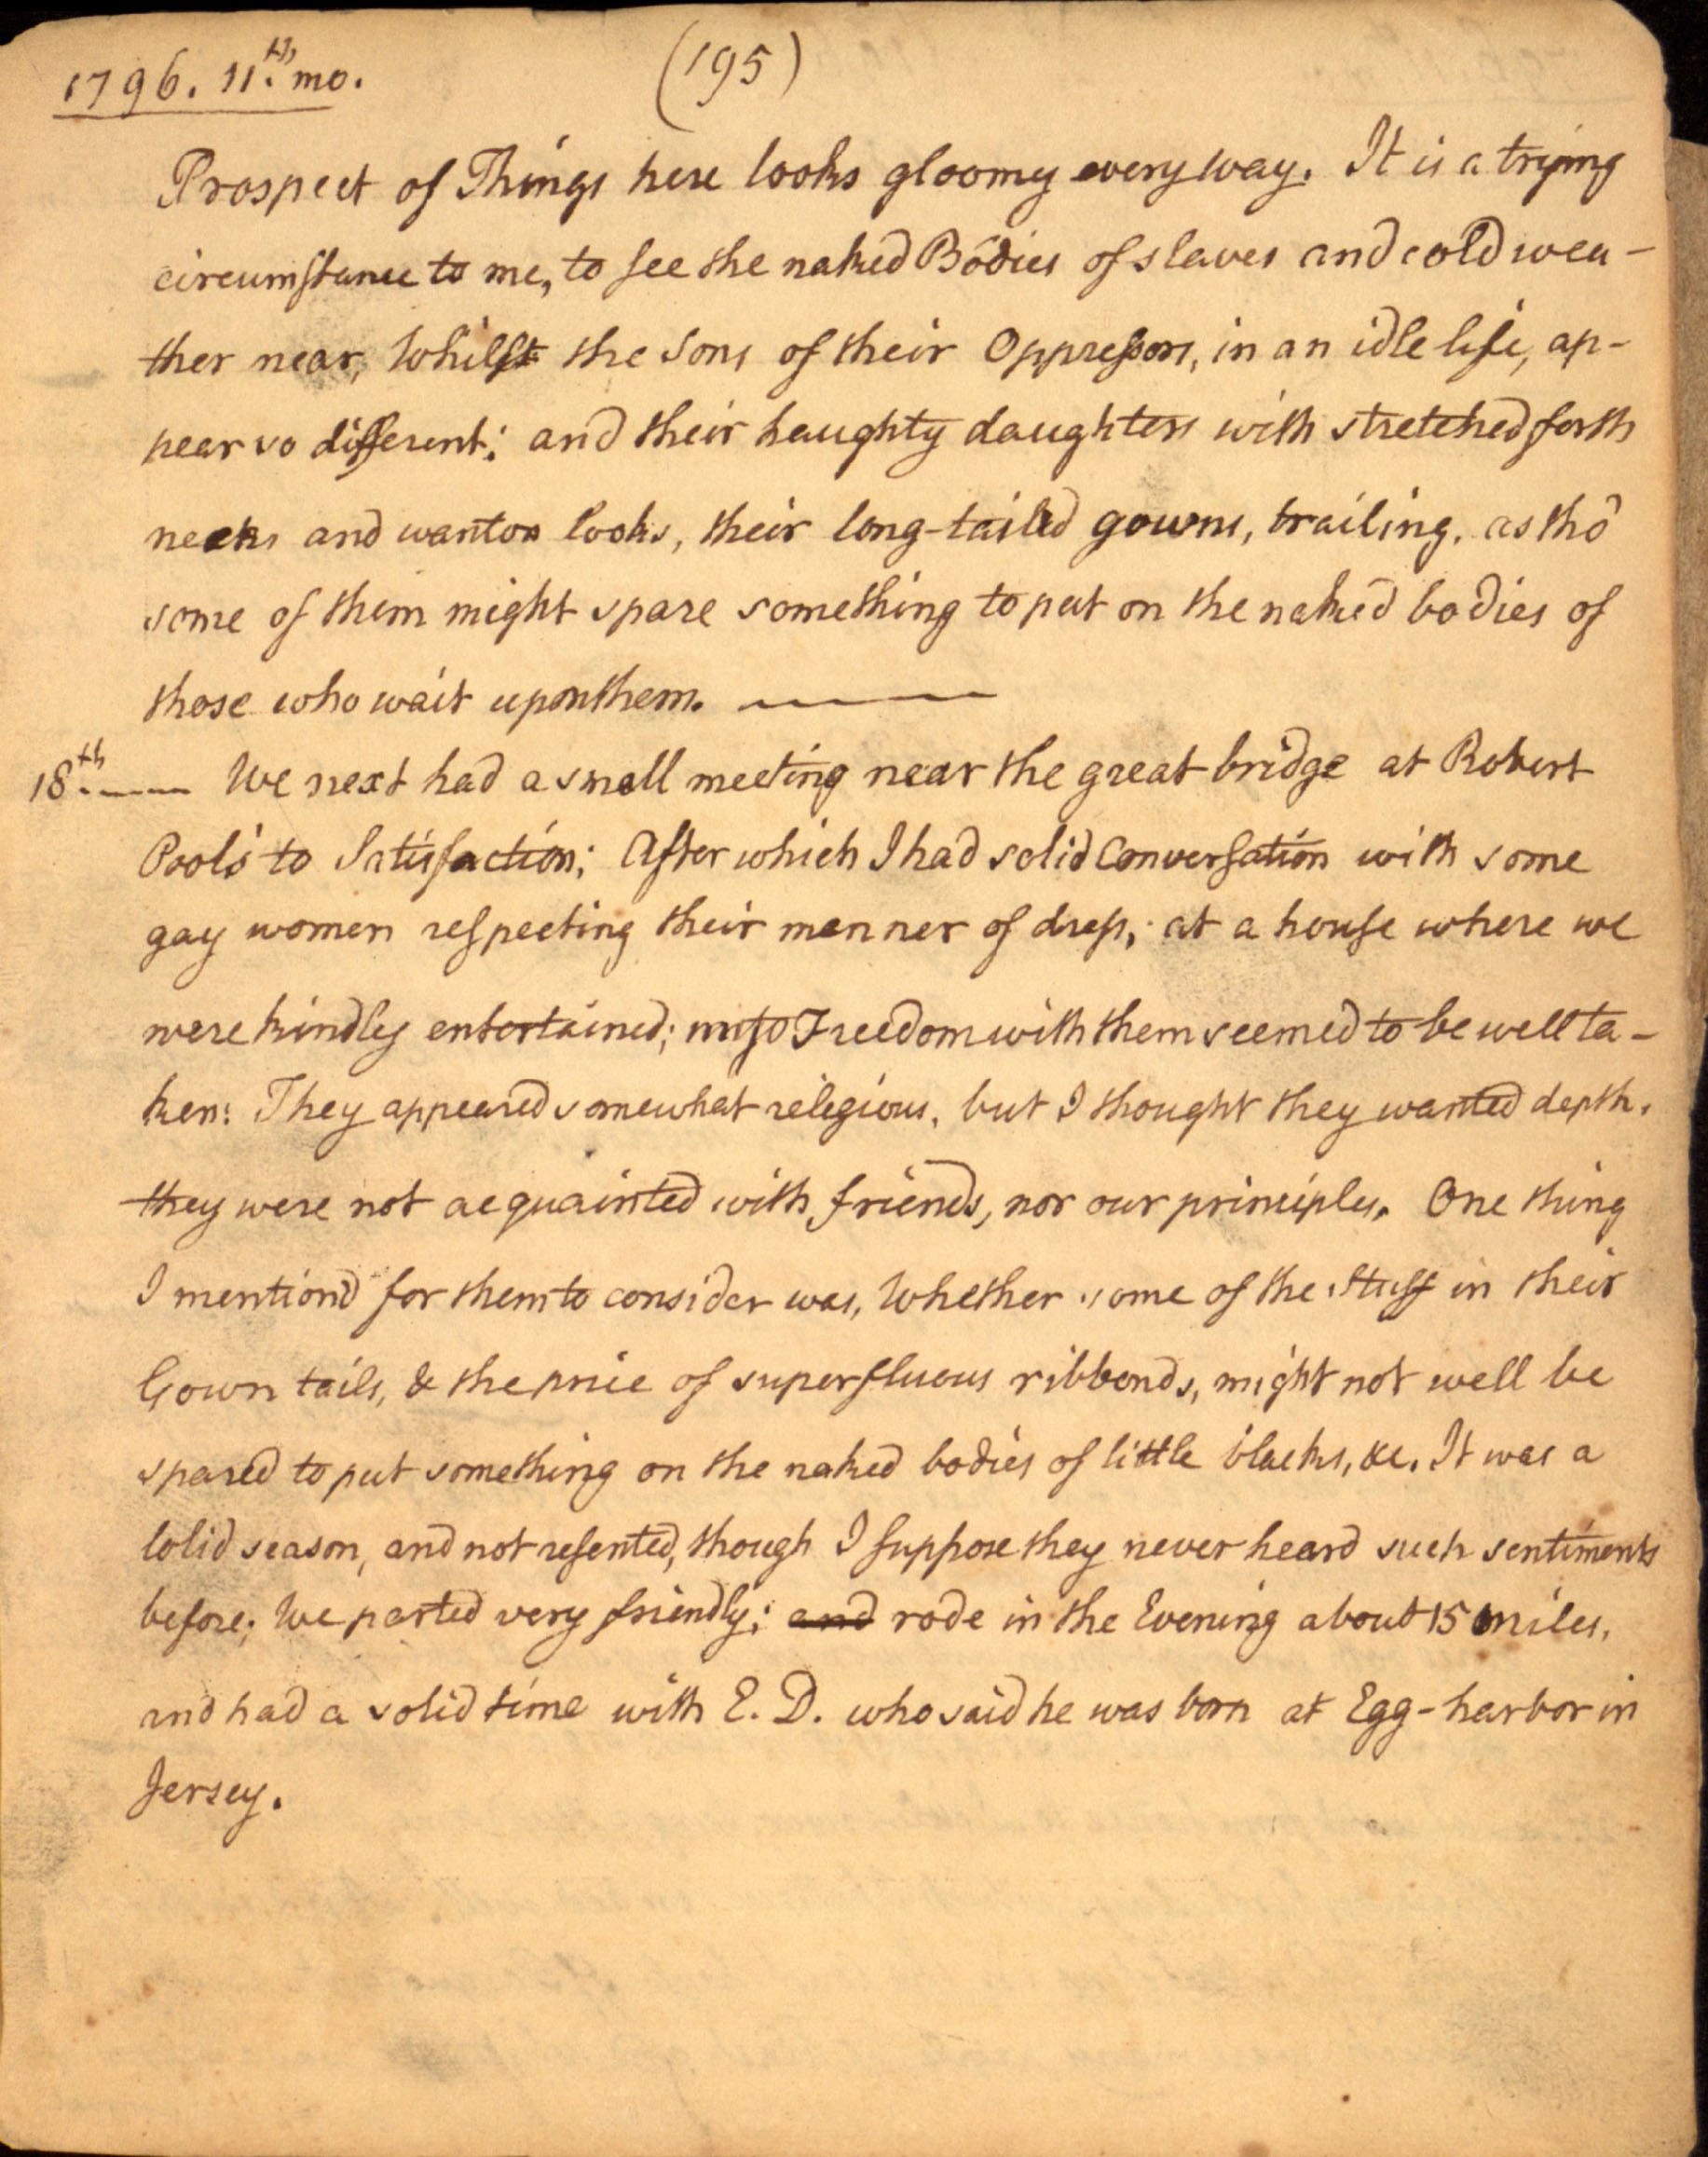 1796. 11.th mo.
(195)
Prospect of Things here looks gloomy every way. It is a trying
circumstance to me, to see the naked Bodies of slaves and cold wea-
ther near, Whilst the Sons of their Oppressors, in an idle life, ap-
pear so different; and their haughty daughters with stretched forth
necks and wanton looks, their long-tailed gowns, trailing, as tho'
some of them might spare something to put on the naked bodies of
those who wait upon them. ———
18.th —— We next had a small meeting near the great bridge at Robert
Pool's to Satisfaction; After which I had solid Conversation with some
gay women respecting their manner of dress, at a house where we
were kindly entertained; Freedom with them seemed to be well ta-
ken: They appeared somewhat religious, but I thought they wanted depth,
they were not acquainted with friends, nor our principles. One thing
I mention'd for them to consider was, Whether some of the Stuff in their
Gown tails, & the price of superfluous ribbonds, might not well be
spared to put something on the naked bodies of little blacks, &c. It was a
solid season, and not resented, though I suppose they never heard such sentiments
before; We parted very friendly; and rode in the Evening about 15 miles,
and had a solid time with E. D. who said he was born at Egg-harbor in
Jersey.